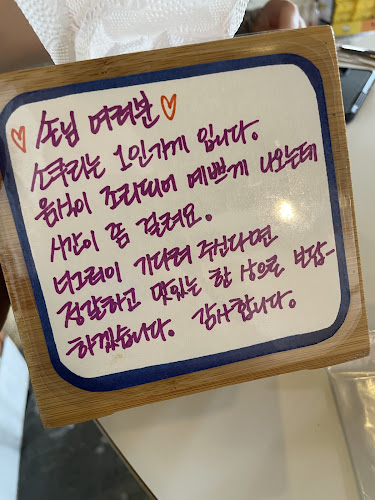 ♡ 손님 여러분 ♡
스쿠리는 1인가게 입니다.
음식이 조리되어 예쁘게 나오는데
시간이 좀 걸려요.
너그러이 기다려 주신다면
정갈하고 맛있는 한 상으로 보답-
하겠습니다. 감사합니다.